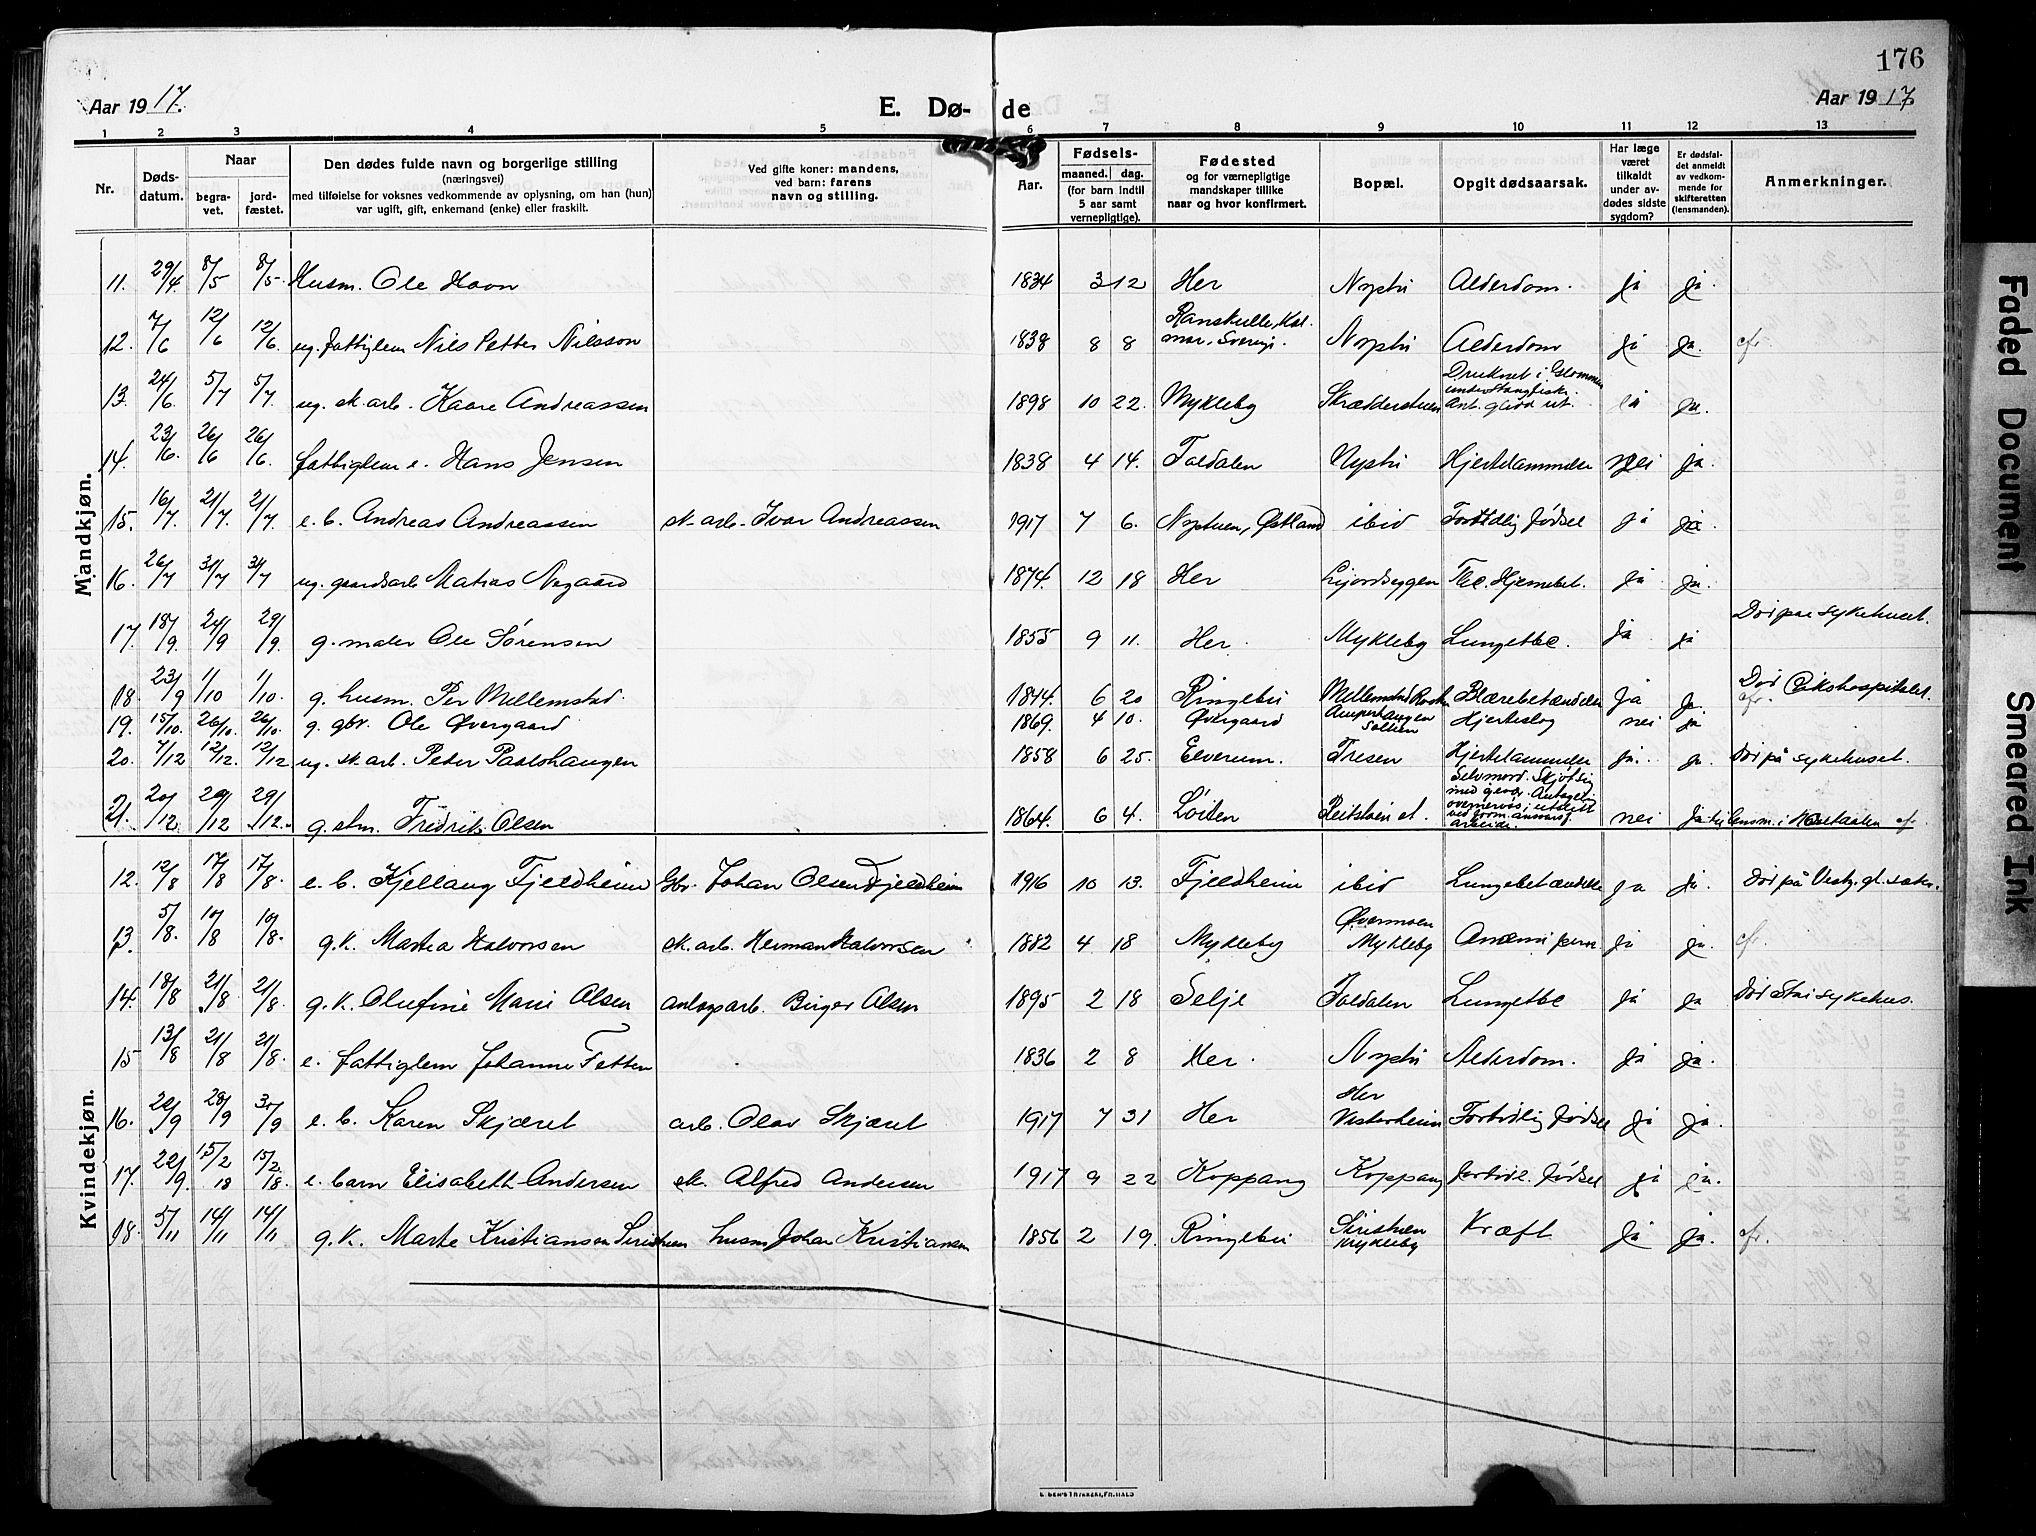 176
Aar 1917. E. Dø- de Aar 1917
1 2 3 4 5 6 7 8 9 10 11 12 13
Nr.
Døds-
datum.
Naar
begra-
vet.
jord-
fæstet.
Den dødes fulde navn og borgerlige stilling
(næringsvei)
med tilføielse for voksnes vedkommende av oplysning, om han (hun)
var ugift, gift, enkemand (enke) eller fraskilt.
Ved gifte koner: mandens,
ved barn: farens
navn og stilling.
Aar.
Fødsels-
maaned. dag.
(for barn indtil
5 aar samt
vernepligtige).
Fødested
og for værnepligtige
mandskaper tillike
naar og hvor konfirmert.
Bopæl.
Opgit dødsaarsak.
Har læge
været
tilkaldt
under av-
dødes sidste
sygdom?
Er dødsfal-
det anmeldt
av vedkom-
mende for
skifteretten
(lensmanden).
Anmerkninger.
Mandkjøn.
11. 29/4. 8/5 8/5. Husm. Ole Havn 1834 3 12 Her Nystu Alderdom. ja ja.
12. 7/6 12/6 12/6. ug. fattiglem Nils Petter Nilsson 1838 8 8 Kal-
mar, Sverige Nystu Alderdom ja ja. cfr.
13. 24/6. 5/7 5/7. ug. sk. arb. Kaare Andreassen 1898 10 22. Mykleby Skrædderstuen Druknet i Glommen
Ant. glidd ut. ja.
14. 23/6. 26/6 26/6. fattiglem e. Hans Jensen 1838 4 14. Foldalen Nystu Hjertelammelse nei ja.
15. 16/7. 21/7. 21/7 e. b. Andreas Andreassen sk. arb. Ivar Andreassen 1917 7 6. Nystuen, Østland ibid Fortidlig fødsel ja ja.
16. 26/7 31/7 31/7 ug. gaardsarb Matias Nygaard 1874. 12 18 Her Tbc. ja ja.
17. 18/9. 24/9 29/9. g. maler Ole Sørensen 1855 9 11. Her. Mykleby Lungetbc. ja ja Død paa sykehuset.
18. 23/9 1/10 1/10. g. husm. Per Mellemstad. 1844. 6 20 Ringebu Mellemstad Blærebetændelse ja ja. Død Rikshospitalet. cfr.
19. 15/10. 26/10. 26/10. g. gbr. Ole Øvergaard 1869. 4 10. Øvergaard Hjerteslag nei ja
20. 7/12 12/12. 12/12. ug. sk. arb. Peder Paalshaugen 1858 6 25. Elverum. Tresen Hjertelammelse ja. ja. Død på sykehuset.
21. 20/12 29/12 29/12. g. stm. Fredrik Olsen 1864. 6 4. Løiten Selvmord. Skjøt sig
med gevær. Antagel.
arbeide. nei ja til lensm. i cfr.
Kvindekjøn.
12. 12/8 17/8 17/8. e. b. Kjellaug Fjeldheim Gbr. Johan Olsen Fjeldheim 1916 10 13. Fjeldheim ibid Lungebetændelse ja ja. Død på sæter.
13. 5/8. 10/8 10/8. g. k. Martea Halvorsen sk. arb. Herman Halvorsen 1882 4 18 Mykleby Øvermoen
Mykleby Anæmi pern. ja ja. cfr.
14. 18/8 21/8 21/8. g. k. Olufine Marie Olsen anlegsarb. Birger Olsen 1895 2 18 Selje Foldalen Lungetbc ja ja Død Stai sykehus.
15 13/8 21/8 21/8. e. fattiglem Johanne Fetten 1836 2 8 Her. Nystu Alderdom. ja ja.
16. 22/9 28/9 30/9 e. b. Karen Skjæret arb. Olav Skjæret 1917 7 31 Her Her
Vesterheim Fortidlig fødsel ja ja.
17. 22/9. 15/2 18 15/2. 18. e. barn Elisabeth Andersen sk. Alfred Andersen 1917 9 22 Koppang Koppang fortidl. fødsel ja ja.
18. 5/11 14/11 14/11 g. k. Marte Kristiansen Siristuen husm Johan Kristiansen 1856 2 19. Ringebu Siristuen
Mykleby Kræft ja ja. cfr.
Faded Document
Smeared Ink